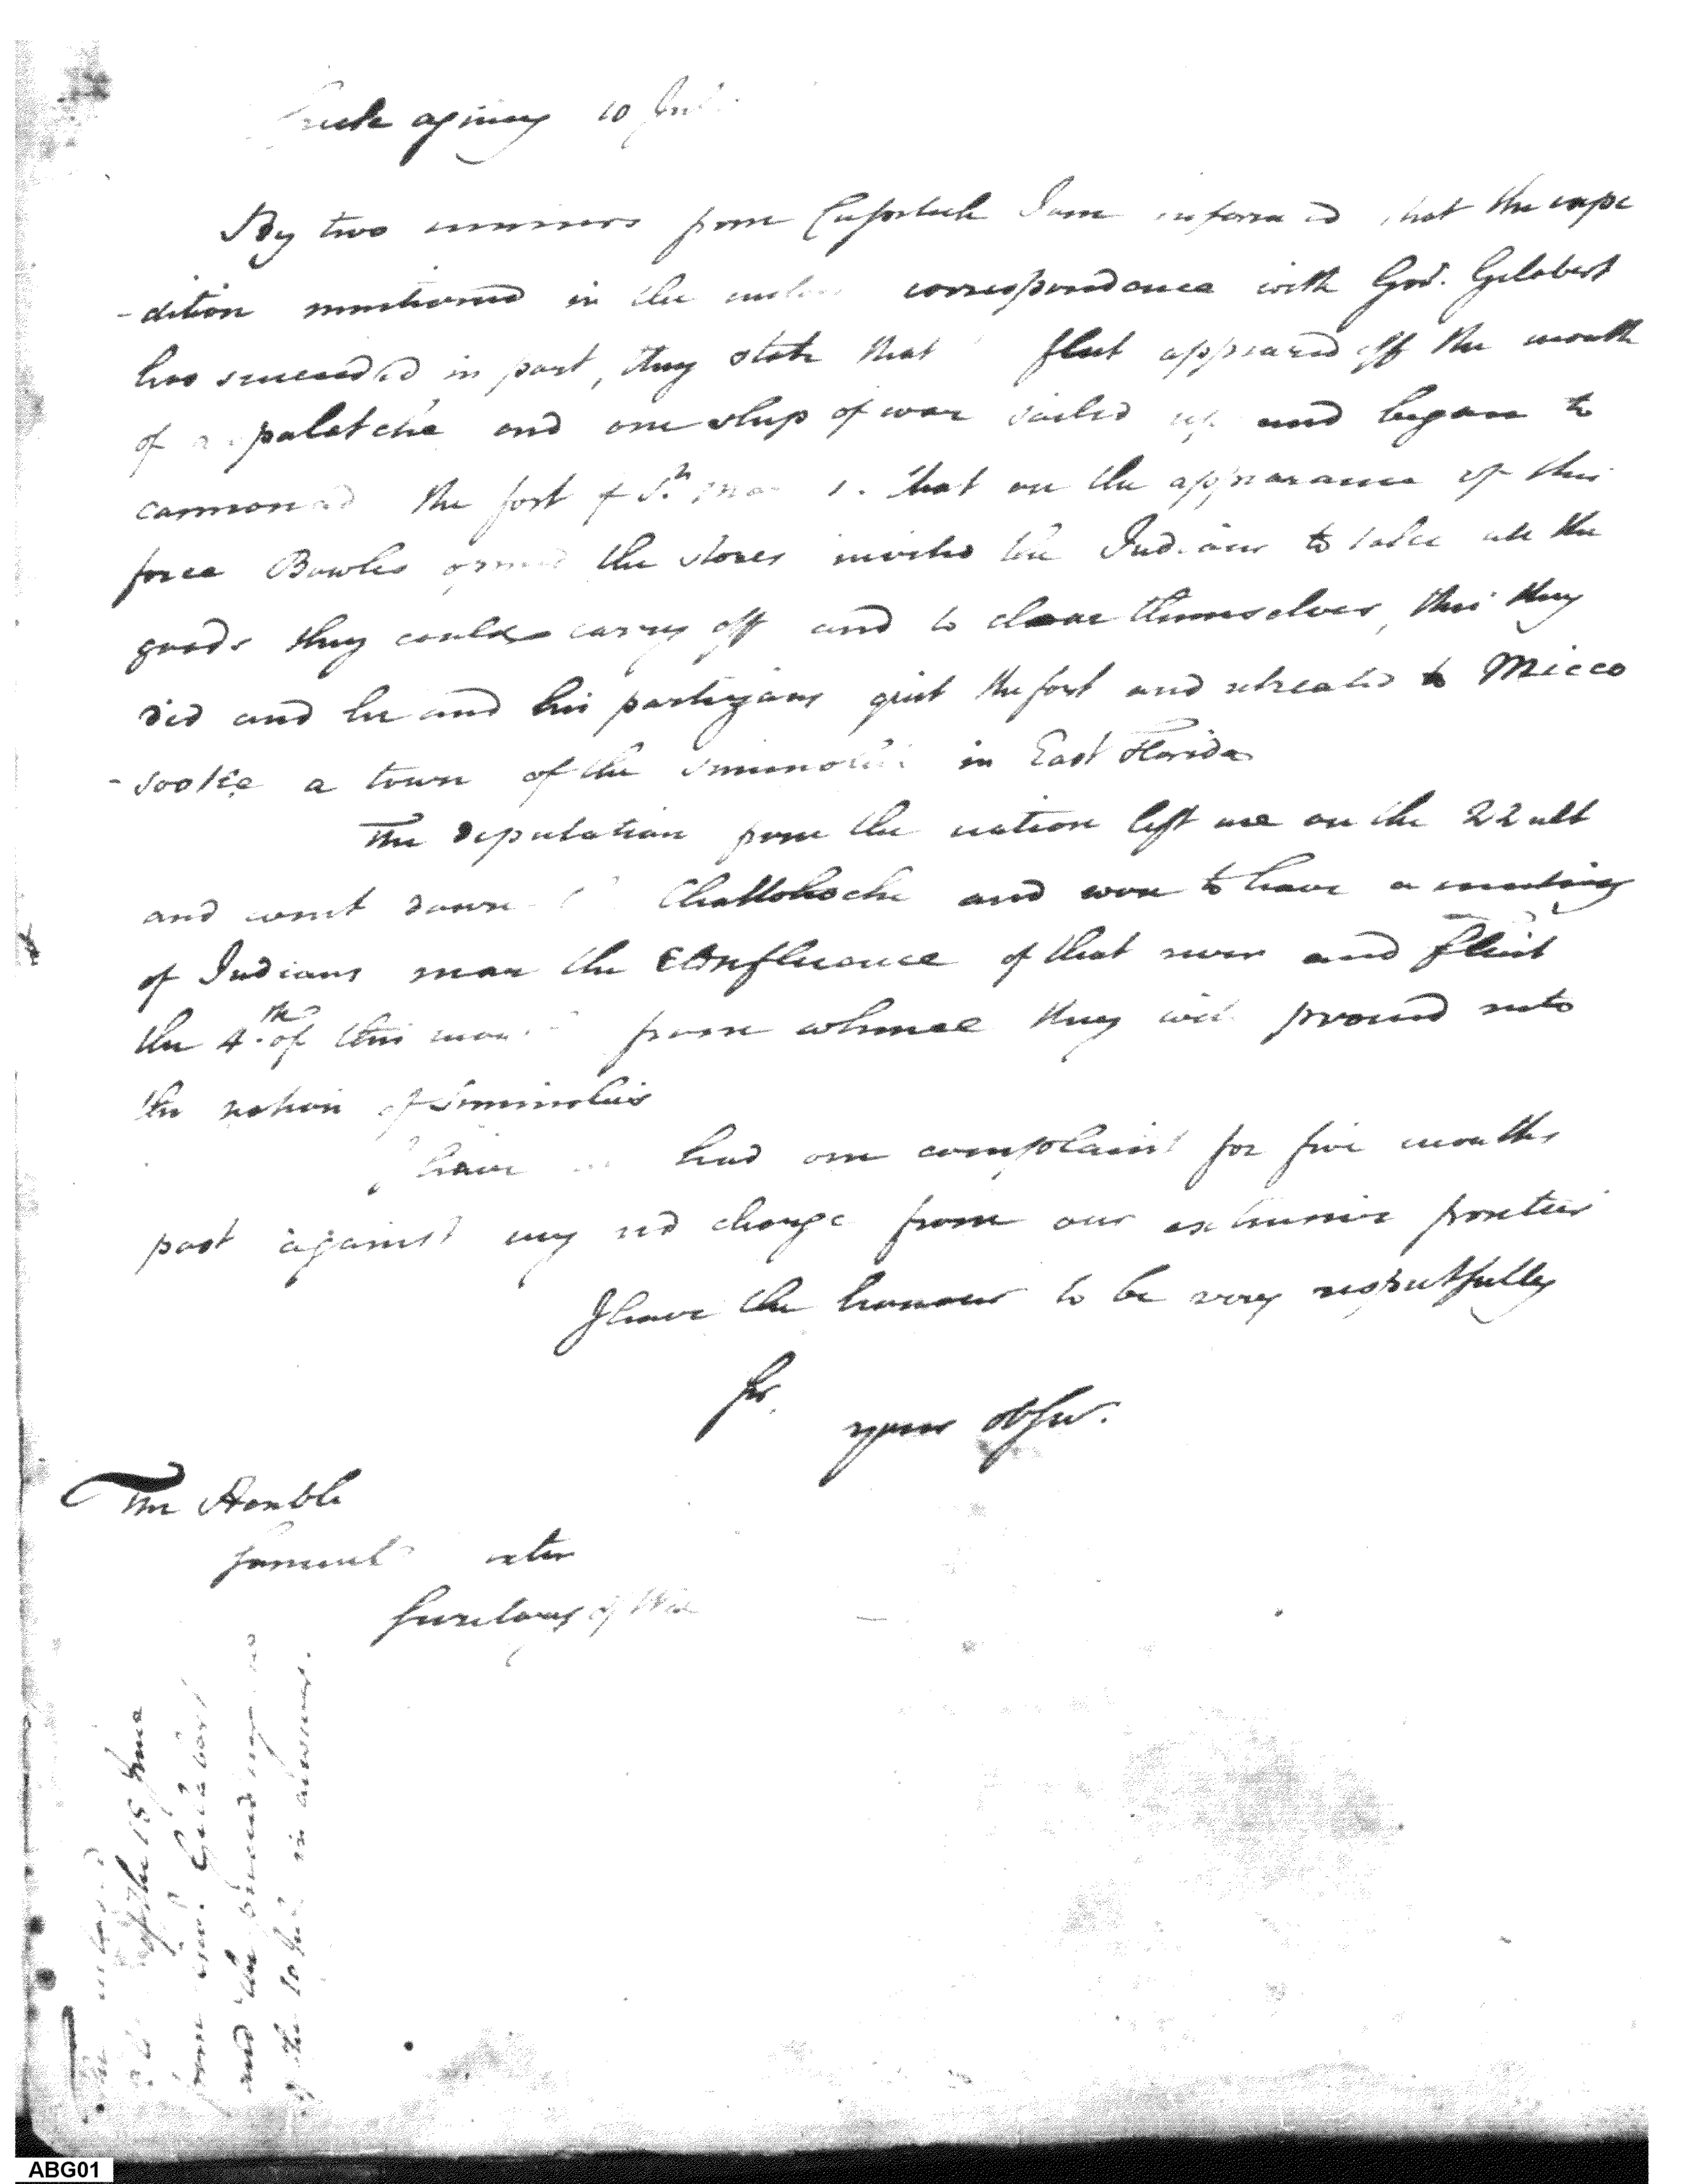 Creek agency 10 July
By two runners from Cussetuh I am informed that the expe
-dition mentioned in the inclosed correspondence with Gov.r Gelabert
has succeeded in part, they state that fleet appeared off the mouth
of apalatche and one ship of war sailed up and began to
cannonad the fort of St. Marks. that on the appearance of this
force Bowles opened the stores invited the Indians to take all the
goods they could carry off and to clear themselves, this they
did and he and his partizans quit the fort and retreated to Micco
-sooke a town of the Siminolies in East Florida
The deputation from the nation left me on the 22 ult
and went down Chattohoche and were to have a meeting
of Indians near the confluence of that river and flint
the 4.th of this month from whence they will proceed into
the nation of Siminolies
I have had one complaint for five months
past against my red charge from our extensive frontier
I have the honour to be very respectfully
Sir,
your ob Ser.
The Honble
Samuel exter
Secretary of War
The inclosed
of the 15 June
from Gov.r Gelabert
and the proceedings
of the 10 July in answer.
ABG01